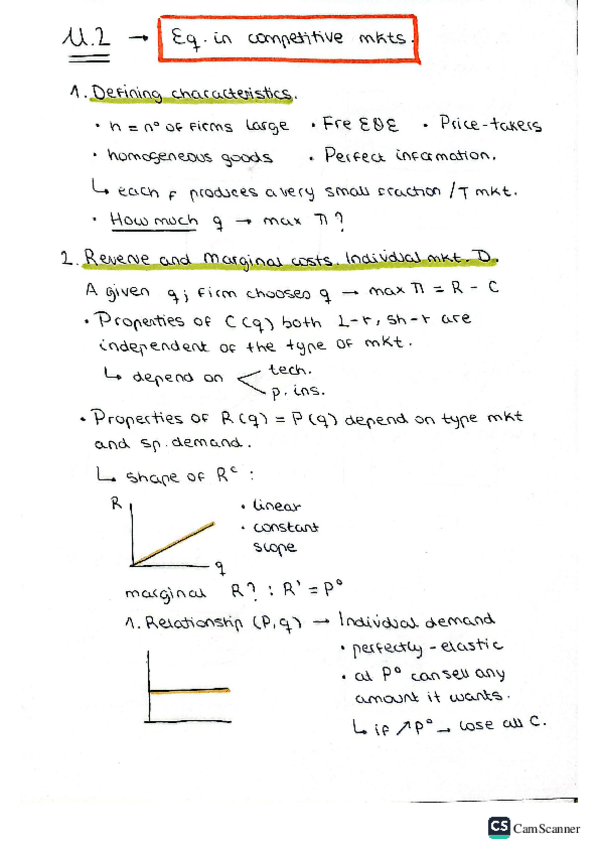 U.2 → Eq. in competitive mkts.
1. Defining characteristics.
· n = nº of firms large · Fre E&E · Price-takers
· homogeneous goods · Perfect information.
↳ each F produces a very small fraction / T mkt.
· How much q → max π?
2. Revenve and marginal costs. Individual mkt. D.
A given q; firm chooses q → max π = R - C
· Properties of C(q) both L-r, sh-r are
independent of the type of mkt.
↳ depend on < tech.
p. ins.
· Properties of R(q) = P(q) depend on type mkt
and sp. demand.
↳ shape of Rᶜ :
R
· linear
· constant
slope
q
marginal R? : R' = Pº
1. Relationship (P,q) → Individual demand
· perfectly-elastic
· at Pº can sell any
amount it wants.
↳ if ↗Pº → lose all C.
CS CamScanner